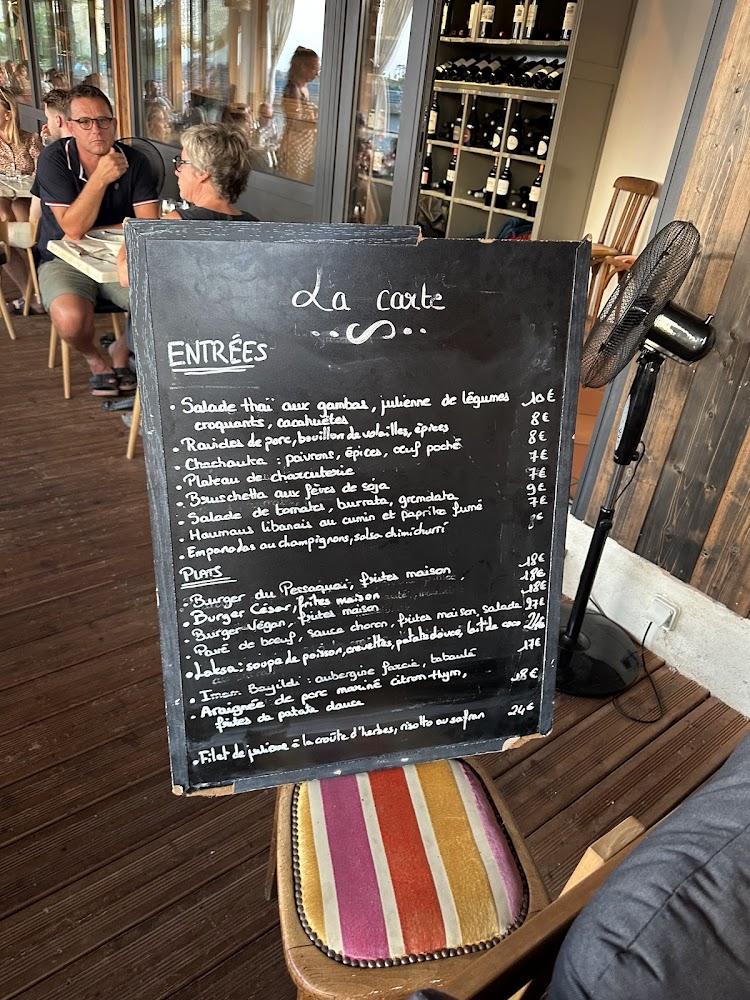 La carte
ENTRÉES
• Salade thaï aux gambas, julienne de légumes 10€
croquants, cacahuètes
• Ravioles de porc, bouillon de volailles, épices 8€
• Chachouka : poivrons, épices, œuf poché 8€
• Plateau de charcuterie 7€
• Bruschetta aux fèves de soja 7€
• Salade de tomates, burrata, gremolata 9€
• Houmous libanais au cumin et paprika fumé 7€
• Empanadas au champignons, salsa chimichurri
PLATS
• Burger du Pessaquai, frites maison 18€
• Burger César, frites maison 18€
• Burger Végan, frites maison 18€
• Pavé de bœuf, sauce choron, frites maison, salade 27€
• Laksa : soupe de poisson, crevettes, patate douce, lait de coco
• Imam Bayildi : aubergine farcie, taboulé 17€
• Araignée de porc mariné citron-thym, 18€
frites de patate douce
• Filet de julienne à la croûte d'herbes, risotto au safran 24€